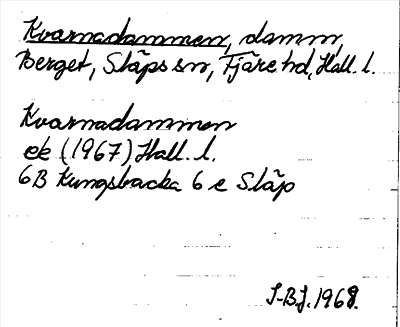 Kvarnadammen, damm,
Berget, Släps sn, Fjäre hd, Hall. l.
Kvarnadammen
ek (1967) Hall. l.
6B Kungsbacka 6 e Släp
I-BJ. 1968.